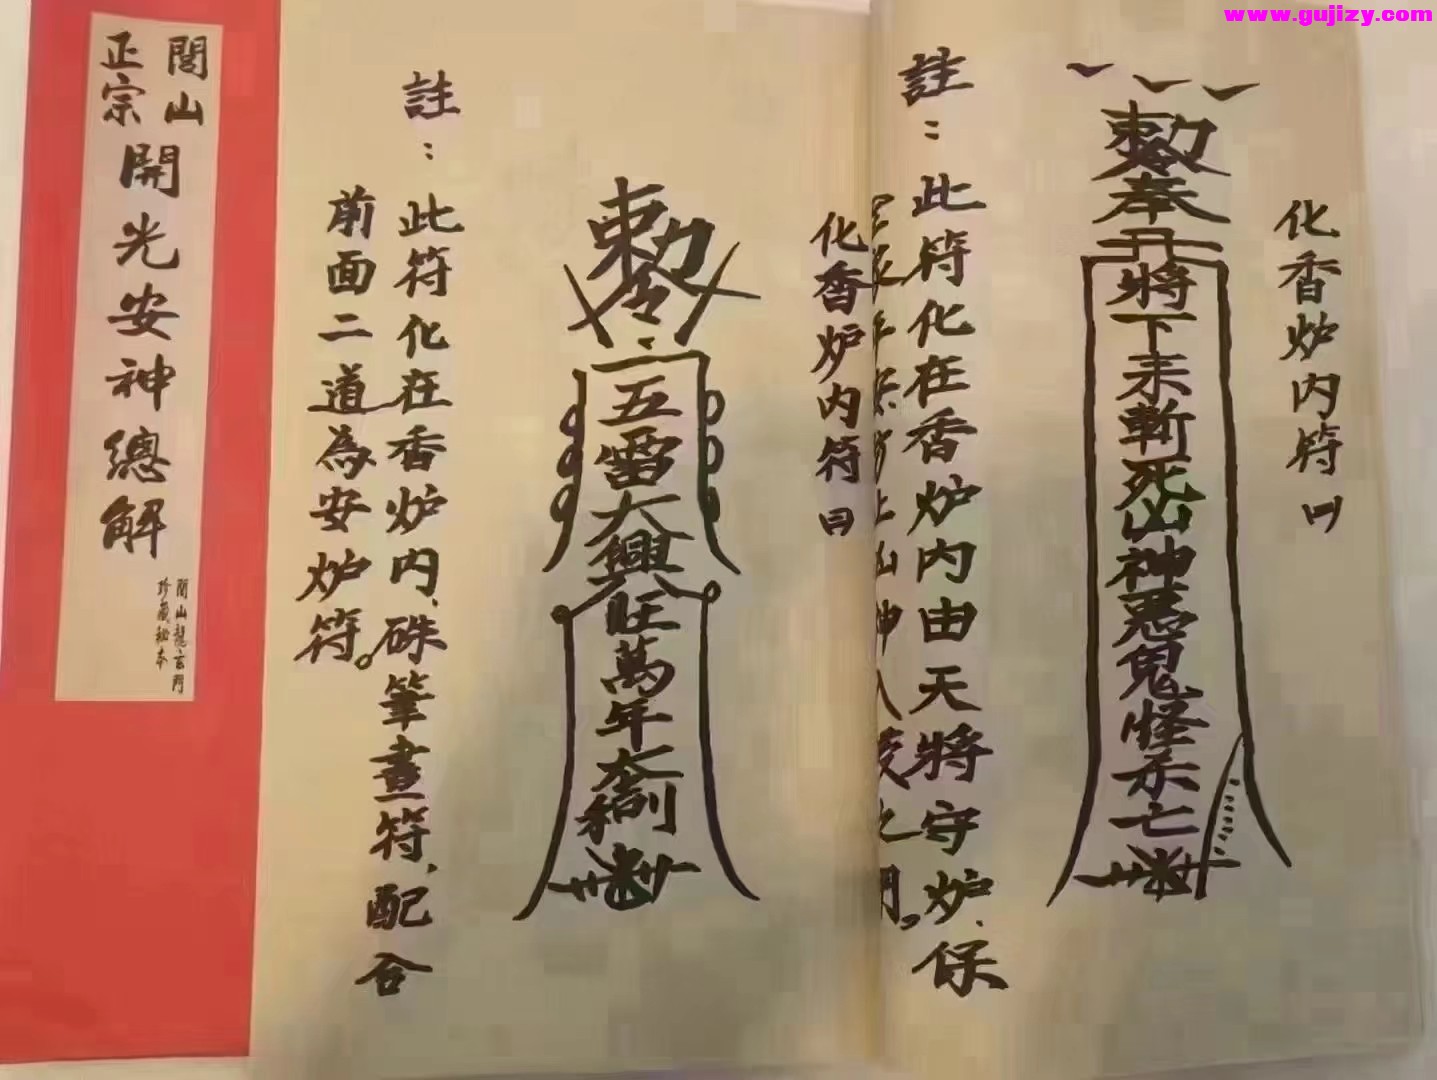 www.gujizy.com
閭山
正宗
開光安神總解
閭山龍玄門
珍藏秘本
化香炉内符
敕令奉
將下未斬死山神惡鬼怪示亡
註：此符化在香炉内由天將守炉、保
化香炉内符
敕令
五雷大興旺萬年
註：此符化在香炉内、硃筆畫符、配合
前面二道為安炉符。